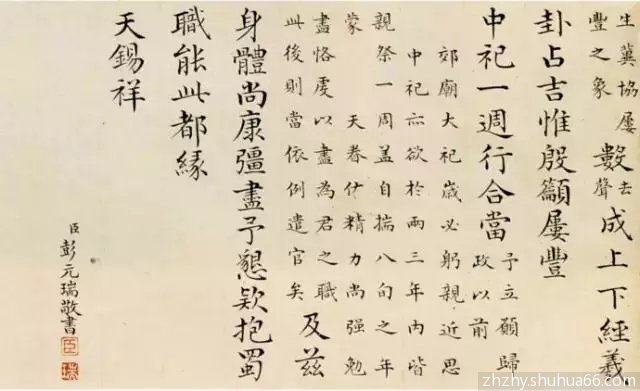 生冀協屢
豐之象
數
去
聲
成上下經義
卦占吉惟殷籲屢豐
中祀一週行合當
予立願歸
政以前
郊廟大祀歲必躬親近思
中祀亦欲於兩三年內皆
親祭一周盖自揣八旬之年
蒙 天眷付精力尚强勉
盡恪虔以盡為君之職
此後則當依例遣官矣
及茲
身體尚康彊盡予懇欵抱蜀
職能此都緣
天錫祥
臣彭元瑞敬書
臣
瑞
zhzhy.shuhua66.com